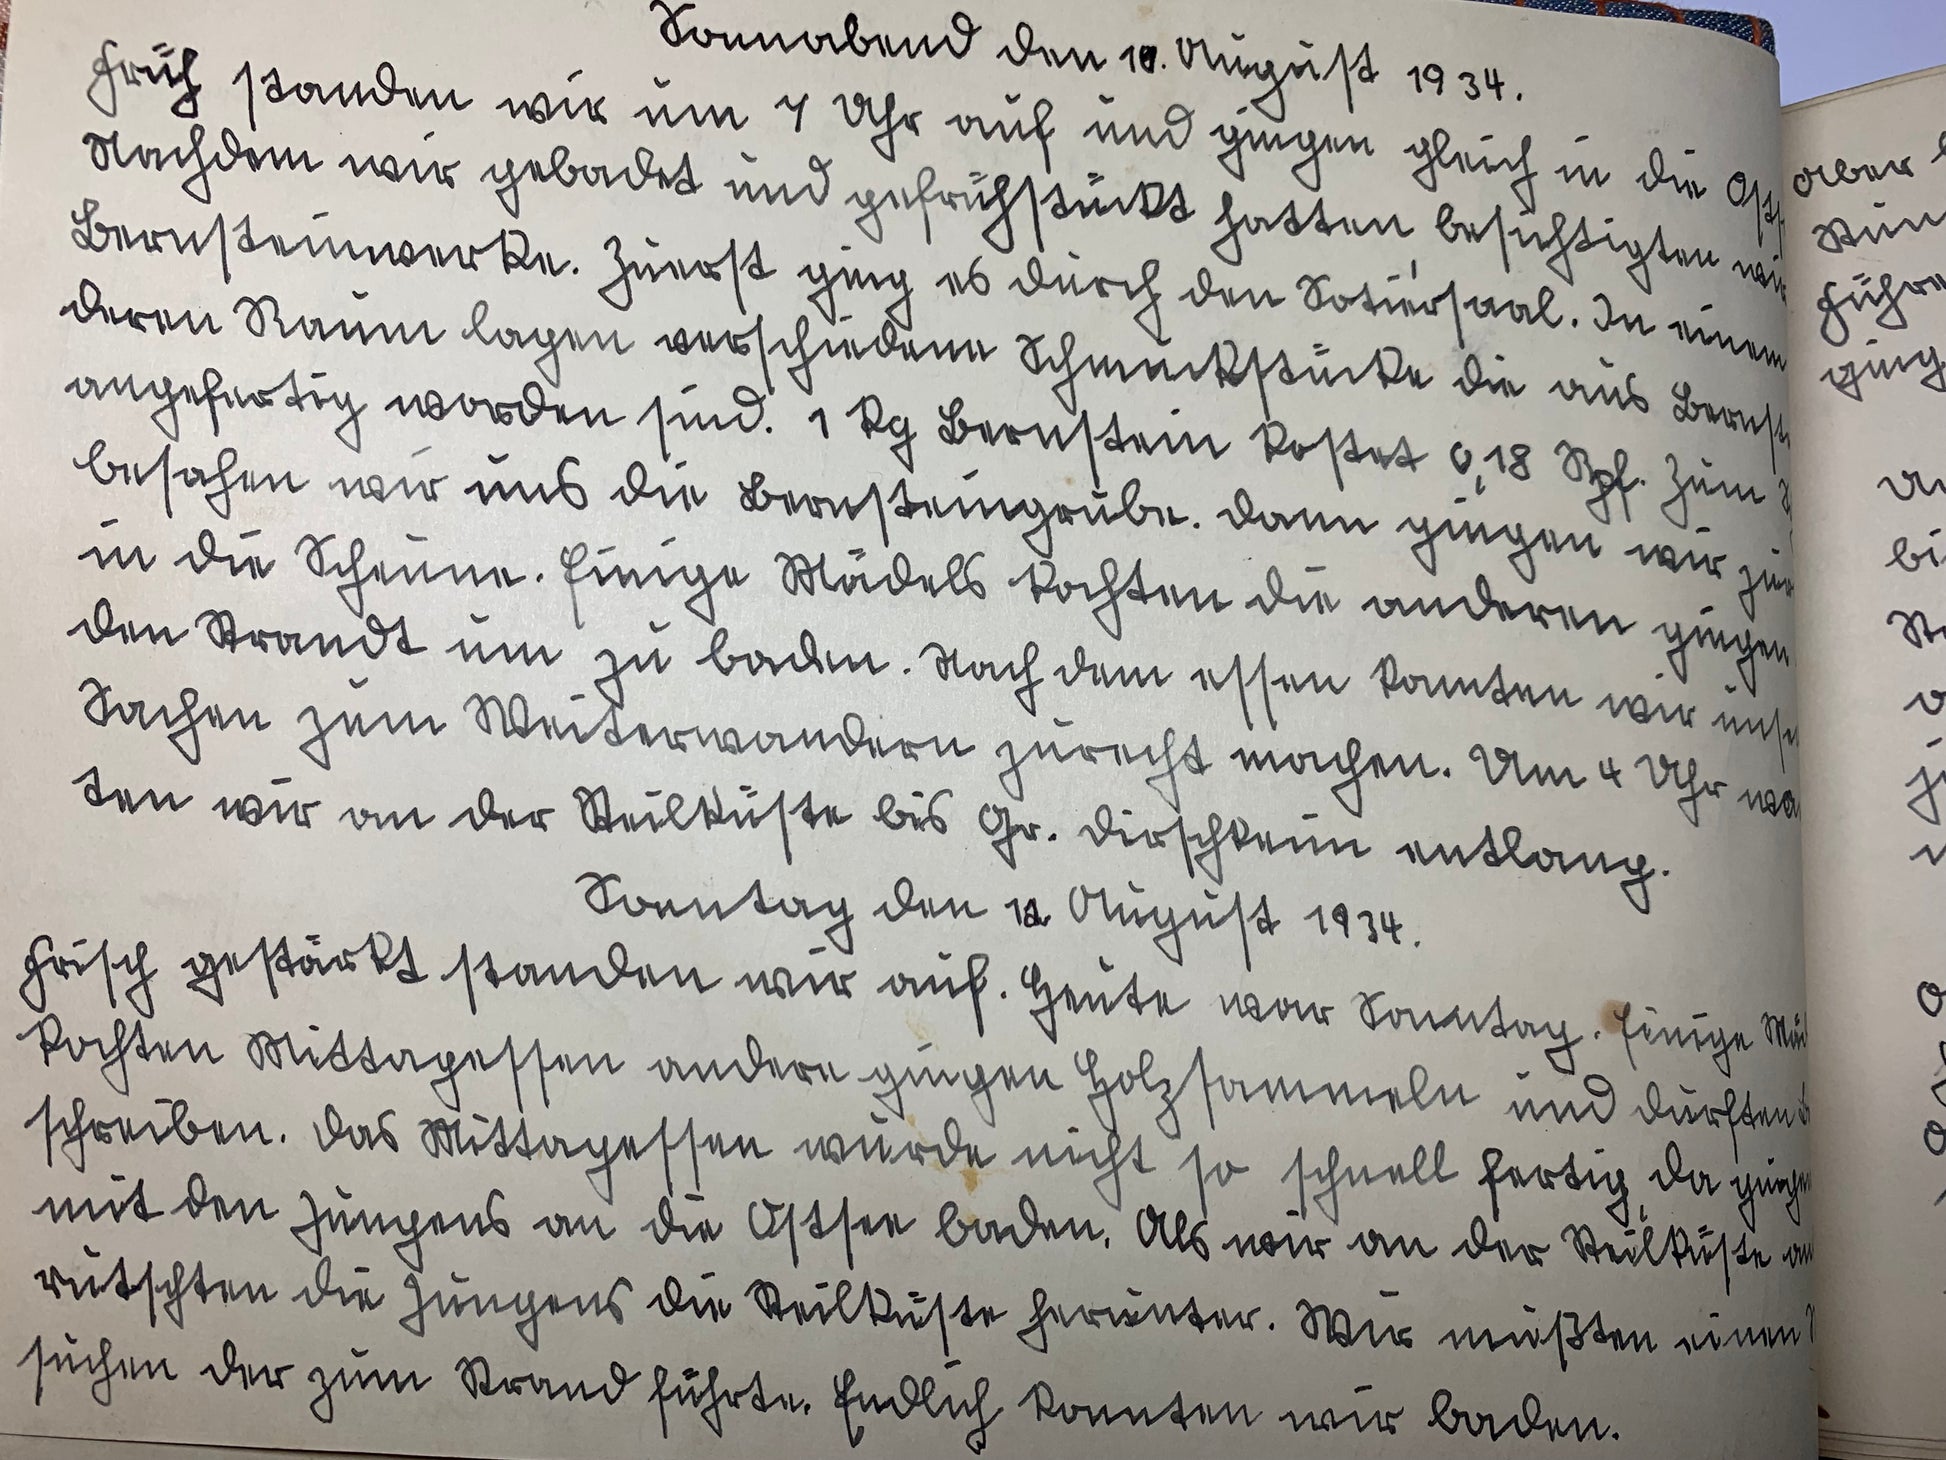 Sonnabend den 10. August 1934.
Früh standen wir um 7 Uhr auf und gingen gleich in die Osts
Nachdem wir gebadet und gefrühstückt hatten, besichtigten wir
Bernsteinwerke. Zuerst ging es durch den Sotiersaal. In einem
deren Raum lagen verschiedene Schmuckstücke die aus Bernst
angefertig worden sind. 1 kg Bernstein kostet 0,18 Rpf. Zum
besahen wir uns die Bernsteingrube. Dann gingen wir zur
in die Scheune. Einige Mädels kochten die anderen gingen
den Strandt um zu baden. Nach dem essen konnten wir unse
Sachen zum Weiterwandern zurecht machen. Um 4 Uhr wa
ten wir an der Steilküste bis Gr. Dirschkeim entlang.
Sonntag den August 1934.
Frisch gestärkt standen wir auf. Heute war Sonntag. Einige Mäd
kochten Mittagessen andere gingen Holzsammeln und durften
schreiben. Das Mittagessen wurde nicht so schnell fertig, da gingen
mit den Jungens an die Ostsee baden. Als wir an der Steilküste an
rutschten die Jungens die Steilküste herunter. Wir mußten einen
suchen der zum Strand führte. Endlich konnten wir baden.
aber
Führe
ging